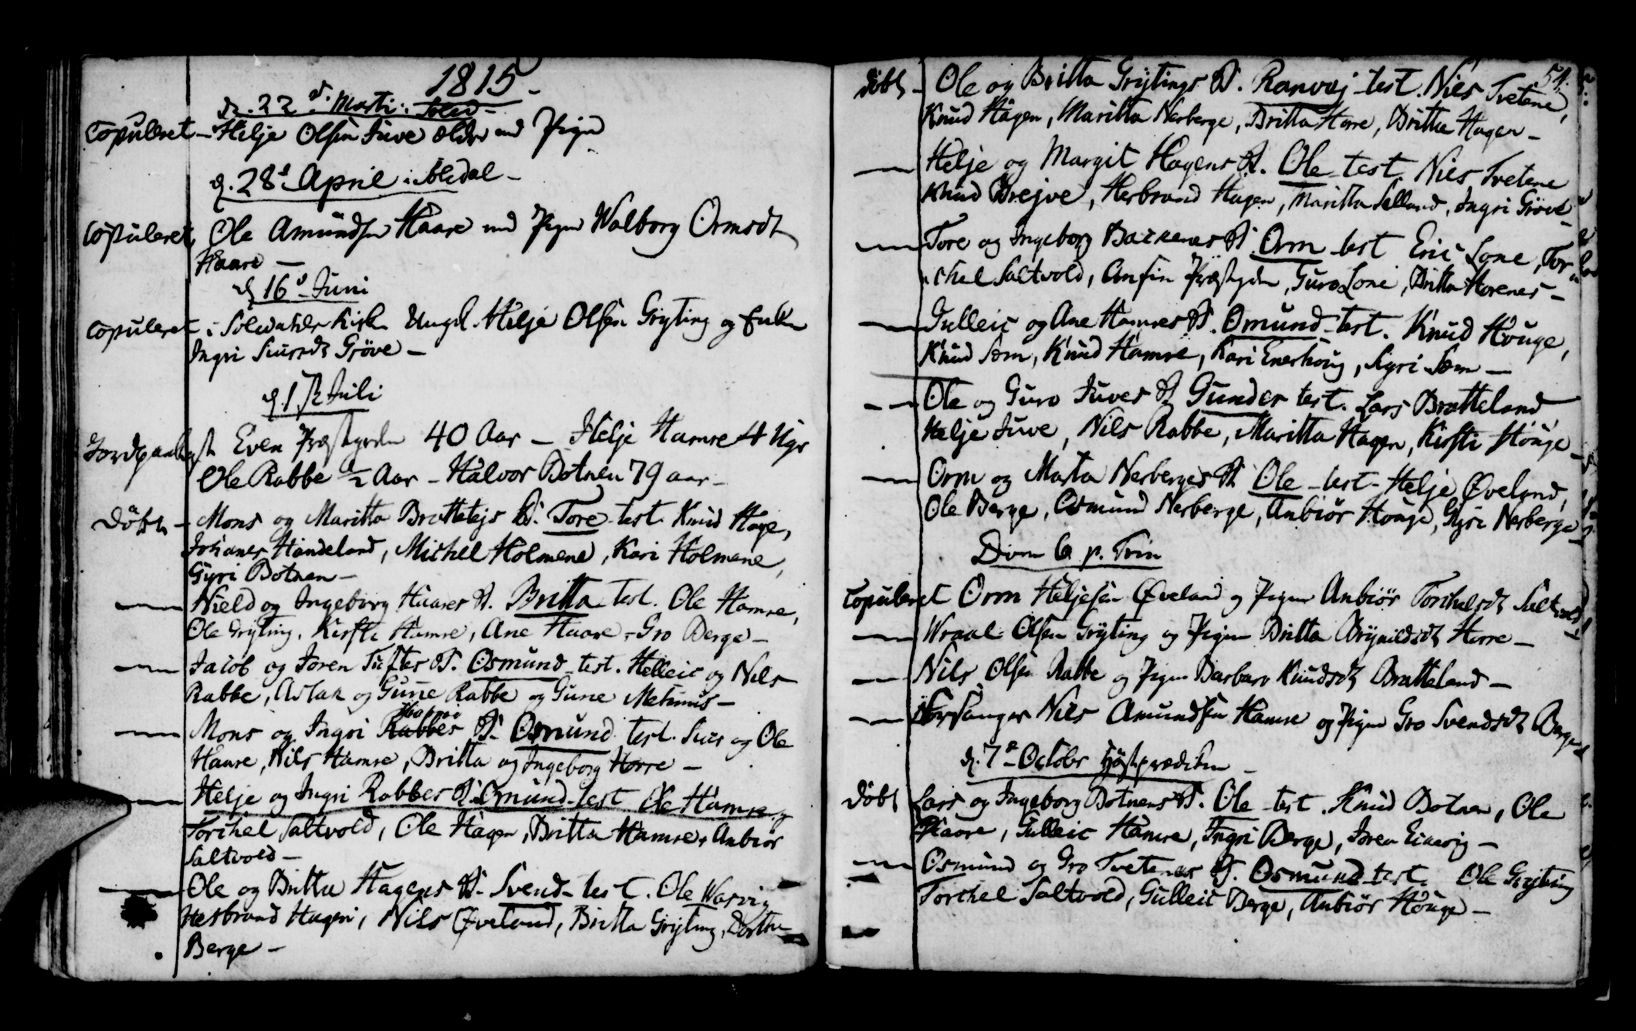 1815.
d. 22 d. Marti:
Copuleret - Helje Olsen Juve ælder med Pigen
d. 28d April i Aledal -
Copuleret, Ole Amundsen Haare med Pigen Walborg Ormsdt
Haare -
d 16d Juni
Copuleret i Kirke Ungk. Helje Olsen Gryting og Enke
Ingri Siursdt Gröve -
d 12 Juli
Jordpaakast Even Præstgrden 40 Aar - Helje Hamre 4 Uger
Ole Rabbe ½ Aar - Halvor Botnen 79 aar -
Döbt - Mons og Maritta Brottetejs B. Tore test. Knud Hage,
Johanes Handeland, Michel Holmene, Kari Holmene,
Gyri Botnen -
Nield og Ingeborg Haares B. Britta test. Ole Hamre,
Ole Gryting, Kirsti Hamre, Ane Haare - Gro Berge -
Jacob og Joren Tuftes B. Osmund test. Helleic og Nels
Rabbe, Aslak og Gune Rabbe og Gune
Mons og Ingri Rabbes B. Osmund test. Siur og Ole
Haare, Nils Hamre, Britta og Ingeborg Horre -
Helje og Ingri Rabbes B. Omund test Ole Hamre,
Torchel Saltvold, Ole Hagen, Britta Hamre, Anbior
Saltvold -
Ole og Britta Hagens B. Svend - test. Ole Warvig
Herbrand Hagen, Nils Öveland, Britta Gryting,
Berge -
54.
döbt - Ole og Britta Grytings B. Ranvej test. Niels Tvetene,
Knud Hagen, Maritta Nerberge, Britta Horre, Britta Hagen -
Helje og Margit Hagens B. Ole test. Niels Tvetene
Knud Brejve, Herbrand Hagen, Maritta Selland, Ingri Gröve
Tore og Ingeborg Backenes B Orm test Eric Lone, Tor-
chel Saltvold, Anfin Præstgrden, Guro Lone, Britta Horenes -
Gulleic og Ane Hamres B. Omund test. Knud Houge,
Knud Sem, Knud Hamre, Kari Enerhoug, Sigri Sem -
Ole og Guro Juves B Gunder test. Lars Bratteland
Helje Juve, Nils Rabbe, Maritta Hagen, Kirsti Houge -
Orm og Marta Nerberges B Ole test. Helje Öveland,
Ole Berge, Osmund Nerberge, Anbiör Houge, Gyri Nerberge
Dom 6 p. Trin
Copuleret Orm Heljesen Öveland og Pigen Anbiör Torchelsdt Saltvold
Wraal Olsen Gryting og Pigen Britta Brynildsdt Horre -
Nils Olsen Rabbe og Pigen Barbara Knudsdt Bratteland -
Forsanger Nils Amundsen Hamre og Pigen Gro Svendsdt Berge
d. 7de October Höstprædiken
Döbt Lars og Ingeborg Botnens B. Ole test. Knud Botnen, Ole
Haare, Gulleic Hamre, Ingri Berge, Joren
Osmund og Gro Tvetenes B. Osmund test. Ole Gryting
Torchel Saltvold, Gulleic Berge, Anbiör Houge -